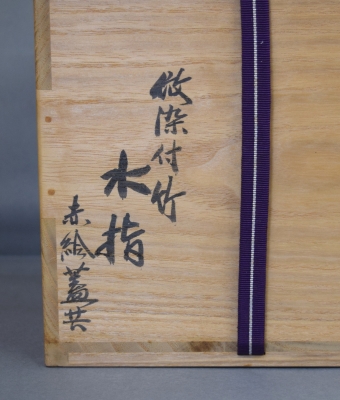 倣染付竹
水指
赤絵蓋共